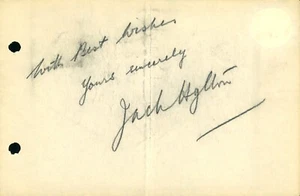 With Best Wishes
Yours sincerely
Jack Hylton